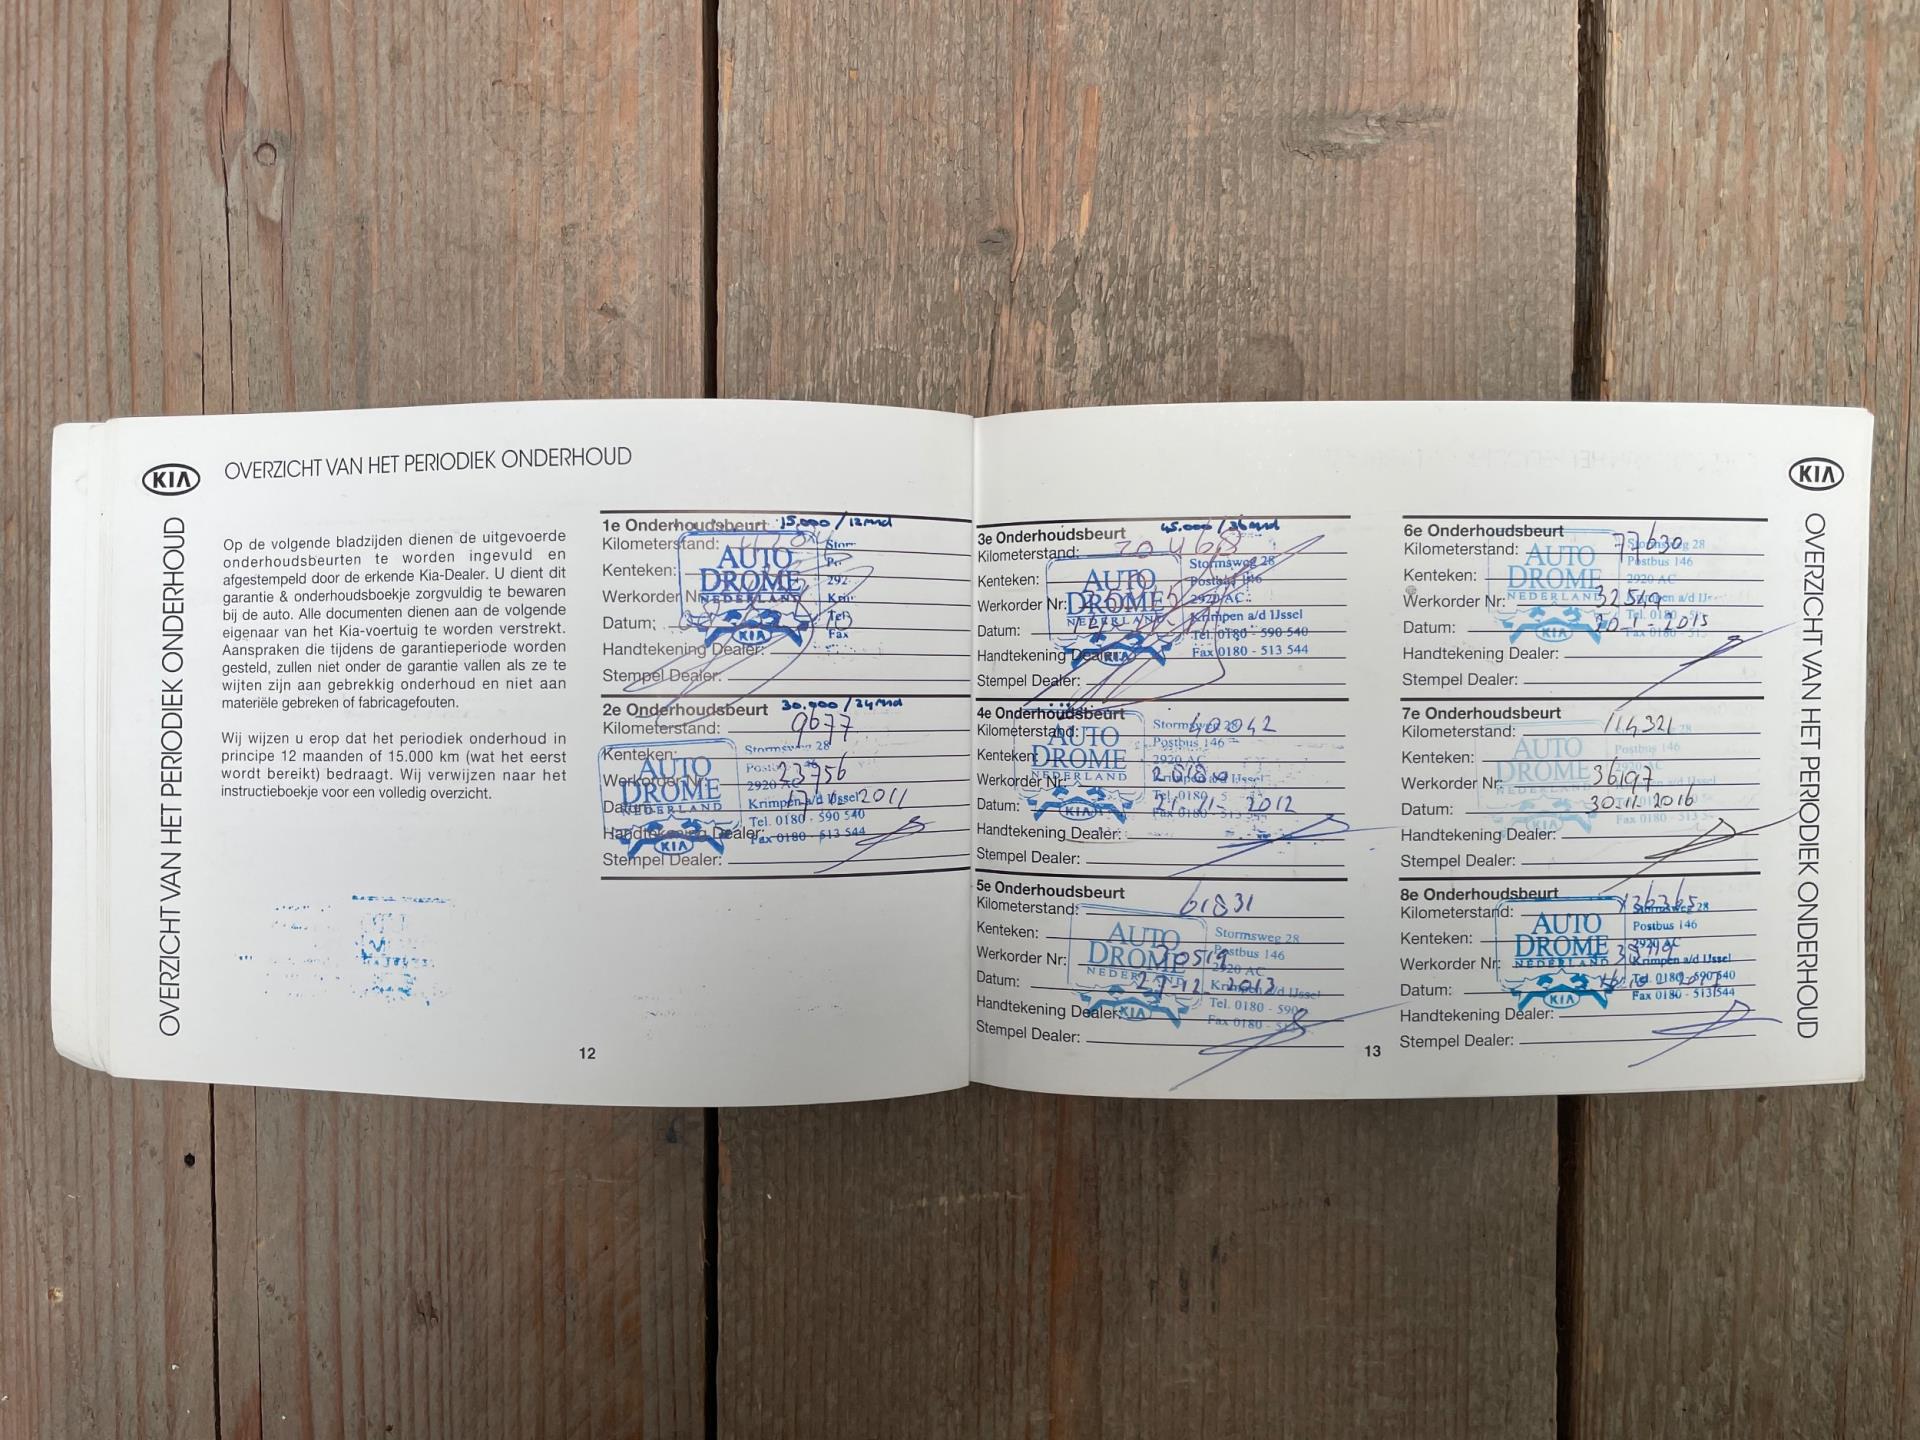 KIA
OVERZICHT VAN HET PERIODIEK ONDERHOUD
OVERZICHT VAN HET PERIODIEK ONDERHOUD
Op de volgende bladzijden dienen de uitgevoerde
onderhoudsbeurten te worden ingevuld en
afgestempeld door de erkende Kia-Dealer. U dient dit
garantie & onderhoudsboekje zorgvuldig te bewaren
bij de auto. Alle documenten dienen aan de volgende
eigenaar van het Kia-voertuig te worden verstrekt.
Aanspraken die tijdens de garantieperiode worden
gesteld, zullen niet onder de garantie vallen als ze te
wijten zijn aan gebrekkig onderhoud en niet aan
materiële gebreken of fabricagefouten.
Wij wijzen u erop dat het periodiek onderhoud in
principe 12 maanden of 15.000 km (wat het eerst
wordt bereikt) bedraagt. Wij verwijzen naar het
instructieboekje voor een volledig overzicht.
1e Onderhoudsbeurt 15.000 / 12 mnd
Kilometerstand:
Kenteken:
Werkorder Nr:
Datum:
Handtekening Dealer:
Stempel Dealer:
AUTO
DROME
NEDERLAND
KIA
Tel
Fax
2e Onderhoudsbeurt 30.000 / 24 mnd
Kilometerstand: 9677
Kenteken:
Werkorder Nr: 23756
Datum: 2011
Handtekening Dealer:
Stempel Dealer:
AUTO
DROME
NEDERLAND
KIA
Stormsweg 28
Postbus 146
2920 AC
Krimpen a/d IJssel
Tel. 0180 - 590 540
Fax 0180 - 513 544
12
3e Onderhoudsbeurt 45.000 / 36 mnd
Kilometerstand: 20468
Kenteken:
Werkorder Nr:
Datum:
Handtekening Dealer:
Stempel Dealer:
AUTO
DROME
NEDERLAND
KIA
Stormsweg 28
Postbus 146
2920 AC
Krimpen a/d IJssel
Tel. 0180 - 590 540
Fax 0180 - 513 544
4e Onderhoudsbeurt
Kilometerstand: 40042
Kenteken:
Werkorder Nr:
Datum: 2012
Handtekening Dealer:
Stempel Dealer:
AUTO
DROME
NEDERLAND
KIA
Stormsweg 28
Postbus 146
2920 AC
Krimpen a/d IJssel
Tel. 0180
Fax 0180 - 513 544
5e Onderhoudsbeurt
Kilometerstand: 61831
Kenteken:
Werkorder Nr: 30519
Datum: 27-12-2013
Handtekening Dealer:
Stempel Dealer:
AUTO
DROME
NEDERLAND
KIA
Stormsweg 28
Postbus 146
2920 AC
Krimpen a/d IJssel
Tel. 0180 - 590
Fax 0180
13
6e Onderhoudsbeurt
Kilometerstand: 77630
Kenteken:
Werkorder Nr: 32549
Datum: 30-1-2015
Handtekening Dealer:
Stempel Dealer:
AUTO
DROME
NEDERLAND
KIA
Stormsweg 28
Postbus 146
2920 AC
Krimpen a/d IJs
Tel. 018
Fax 0180
7e Onderhoudsbeurt
Kilometerstand: 114321
Kenteken:
Werkorder Nr: 36197
Datum: 30-11-2016
Handtekening Dealer:
Stempel Dealer:
AUTO
DROME
NEDERLAND
KIA
Postbus 146
Fax 0180
8e Onderhoudsbeurt
Kilometerstand: 136365
Kenteken:
Werkorder Nr:
Datum: 2017
Handtekening Dealer:
Stempel Dealer:
AUTO
DROME
NEDERLAND
KIA
Stormsweg 28
Postbus 146
2920 AC
Krimpen a/d IJssel
Tel. 0180 - 590540
Fax 0180 - 513544
KIA
OVERZICHT VAN HET PERIODIEK ONDERHOUD